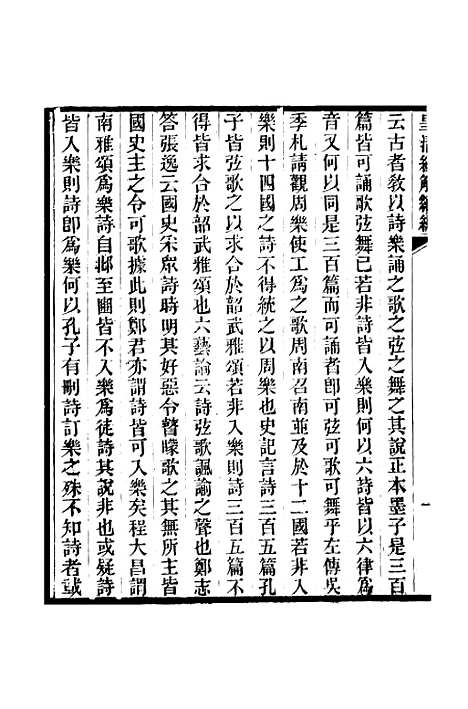 皇清經解續編
一
云古者敎以詩樂誦之歌之弦之舞之其說正本墨子是三百
篇皆可誦歌弦舞已若非詩皆入樂則何以六詩皆以六律爲
音又何以同是三百篇而可誦者卽可弦可歌可舞乎左傳吳
季札請觀周樂使工爲之歌周南召南並及於十二國若非入
樂則十四國之詩不得統之以周樂也史記言詩三百五篇孔
子皆弦歌之以求合於韶武雅頌若非入樂則詩三百五篇不
得皆求合於韶武雅頌也六藝論云詩弦歌諷諭之聲也鄭志
答張逸云國史宷眾詩時明其好惡令瞽矇歌之其無所主皆
國史主之令可歌據此則鄭君亦謂詩皆可入樂矣程大昌謂
南雅頌爲樂詩自邶至豳皆不入樂爲徒詩其說非也或疑詩
皆入樂則詩卽爲樂何以孔子有刪詩訂樂之殊不知詩者載